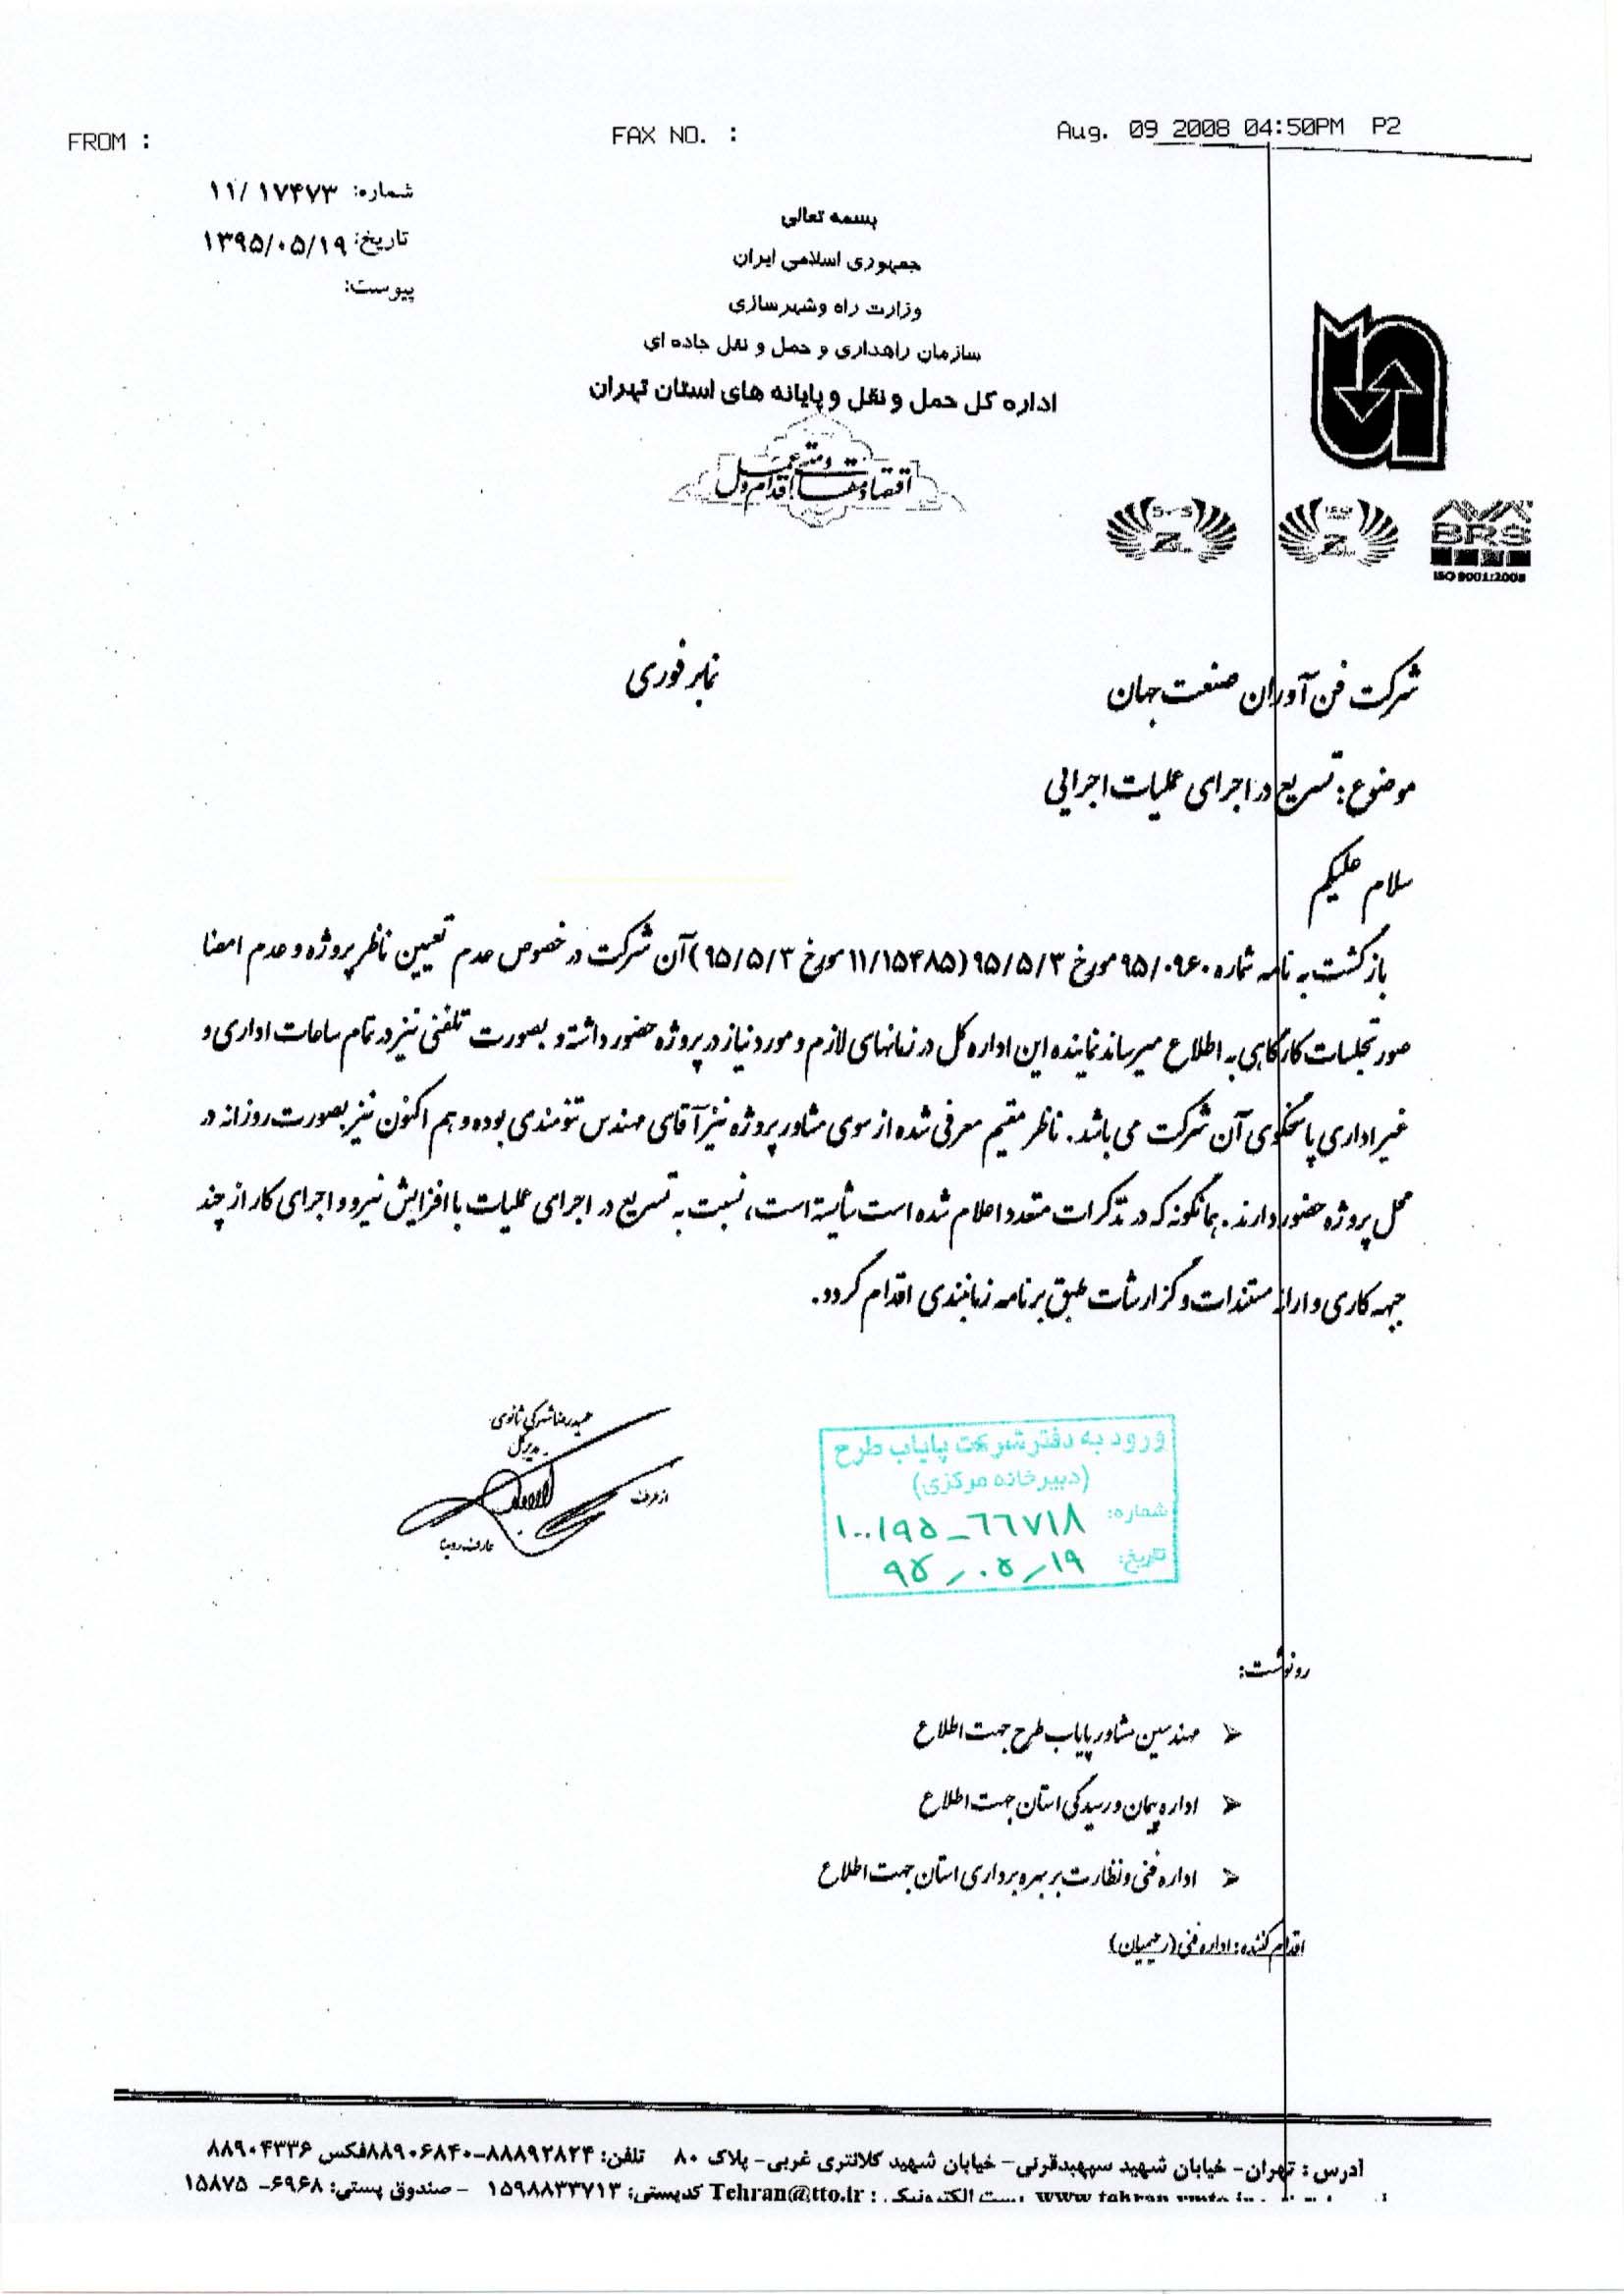 FROM :
FAX NO. :
Aug. 09 2008 04:50PM P2
شماره: ۱۱/۱۷۴۷۳
تاریخ: ۱۳۹۵/۰۵/۱۹
پیوست:
بسمه تعالی
جمهوری اسلامی ایران
وزارت راه وشهرسازی
سازمان راهداری و حمل و نقل جاده ای
اداره کل حمل و نقل و پایانه های استان تهران
BRS
ISO 9001:2008
شرکت فن آوران صنعت جهان
نمابر فوری
موضوع: تسریع در اجرای عملیات اجرایی
سلام علیکم
بازگشت به نامه شماره ۹۵/۰۹۶۰ مورخ ۹۵/۵/۳ (۱۱/۱۵۴۸۵ مورخ ۹۵/۵/۳) آن شرکت در خصوص عدم تعیین ناظر پروژه و عدم امضا
صورتجلسات کارگاهی به اطلاع میرساند نماینده این اداره کل در زمانهای لازم و مورد نیاز در پروژه حضور داشته و بصورت تلفنی نیز در تمام ساعات اداری و
غیر اداری پاسخگوی آن شرکت می باشد. ناظر مقیم معرفی شده از سوی مشاور پروژه نیز آقای مهندس تنومندی بوده و هم اکنون نیز بصورت روزانه در
محل پروژه حضور دارند. همانگونه که در تذکرات متعدد اعلام شده است شایسته است، نسبت به تسریع در اجرای عملیات با افزایش نیرو و اجرای کار از چند
جبهه کاری و ارائه مستندات و گزارشات طبق برنامه زمانبندی اقدام گردد.
حمیدرضا شرکی ثانوی
مدیرکل
از طرف
ورود به دفتر شرکت پایاب طرح
(دبیرخانه مرکزی)
شماره: ۱۰۰/۹۵-۶۶۷۱۸
تاریخ: ۹۵/۰۵/۱۹
رونوشت:
مهندسین مشاور پایاب طرح جهت اطلاع
اداره پیمان و رسیدگی استان جهت اطلاع
اداره فنی و نظارت بر بهره برداری استان جهت اطلاع
اقدام کننده: اداره فنی (رحیمیان)
آدرس : تهران- خیابان شهید سپهبدقرنی- خیابان شهید کلانتری غربی- پلاک ۸۰ تلفن: ۸۸۸۹۲۸۲۴-۸۸۹۰۶۸۴۰فکس ۸۸۹۰۴۳۳۶
پست الکترونیک : Tehran@tto.ir کدپستی: ۱۵۹۸۸۳۳۷۱۳ - صندوق پستی: ۶۹۶۸- ۱۵۸۷۵